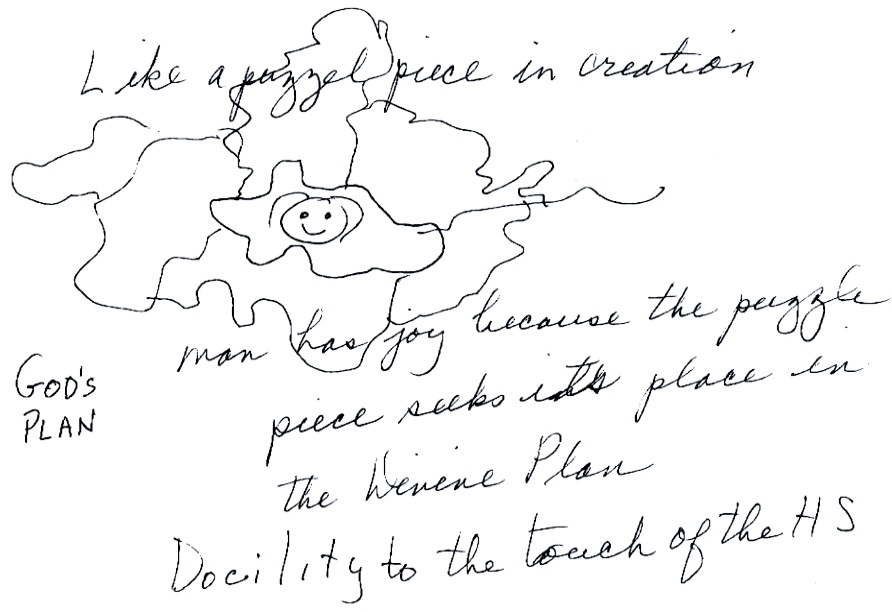 Like a puzzel piece in creation
man has joy because the puzzle
GOD'S
PLAN
piece seeks its place in
the Divine Plan
Docility to the touch of the HS